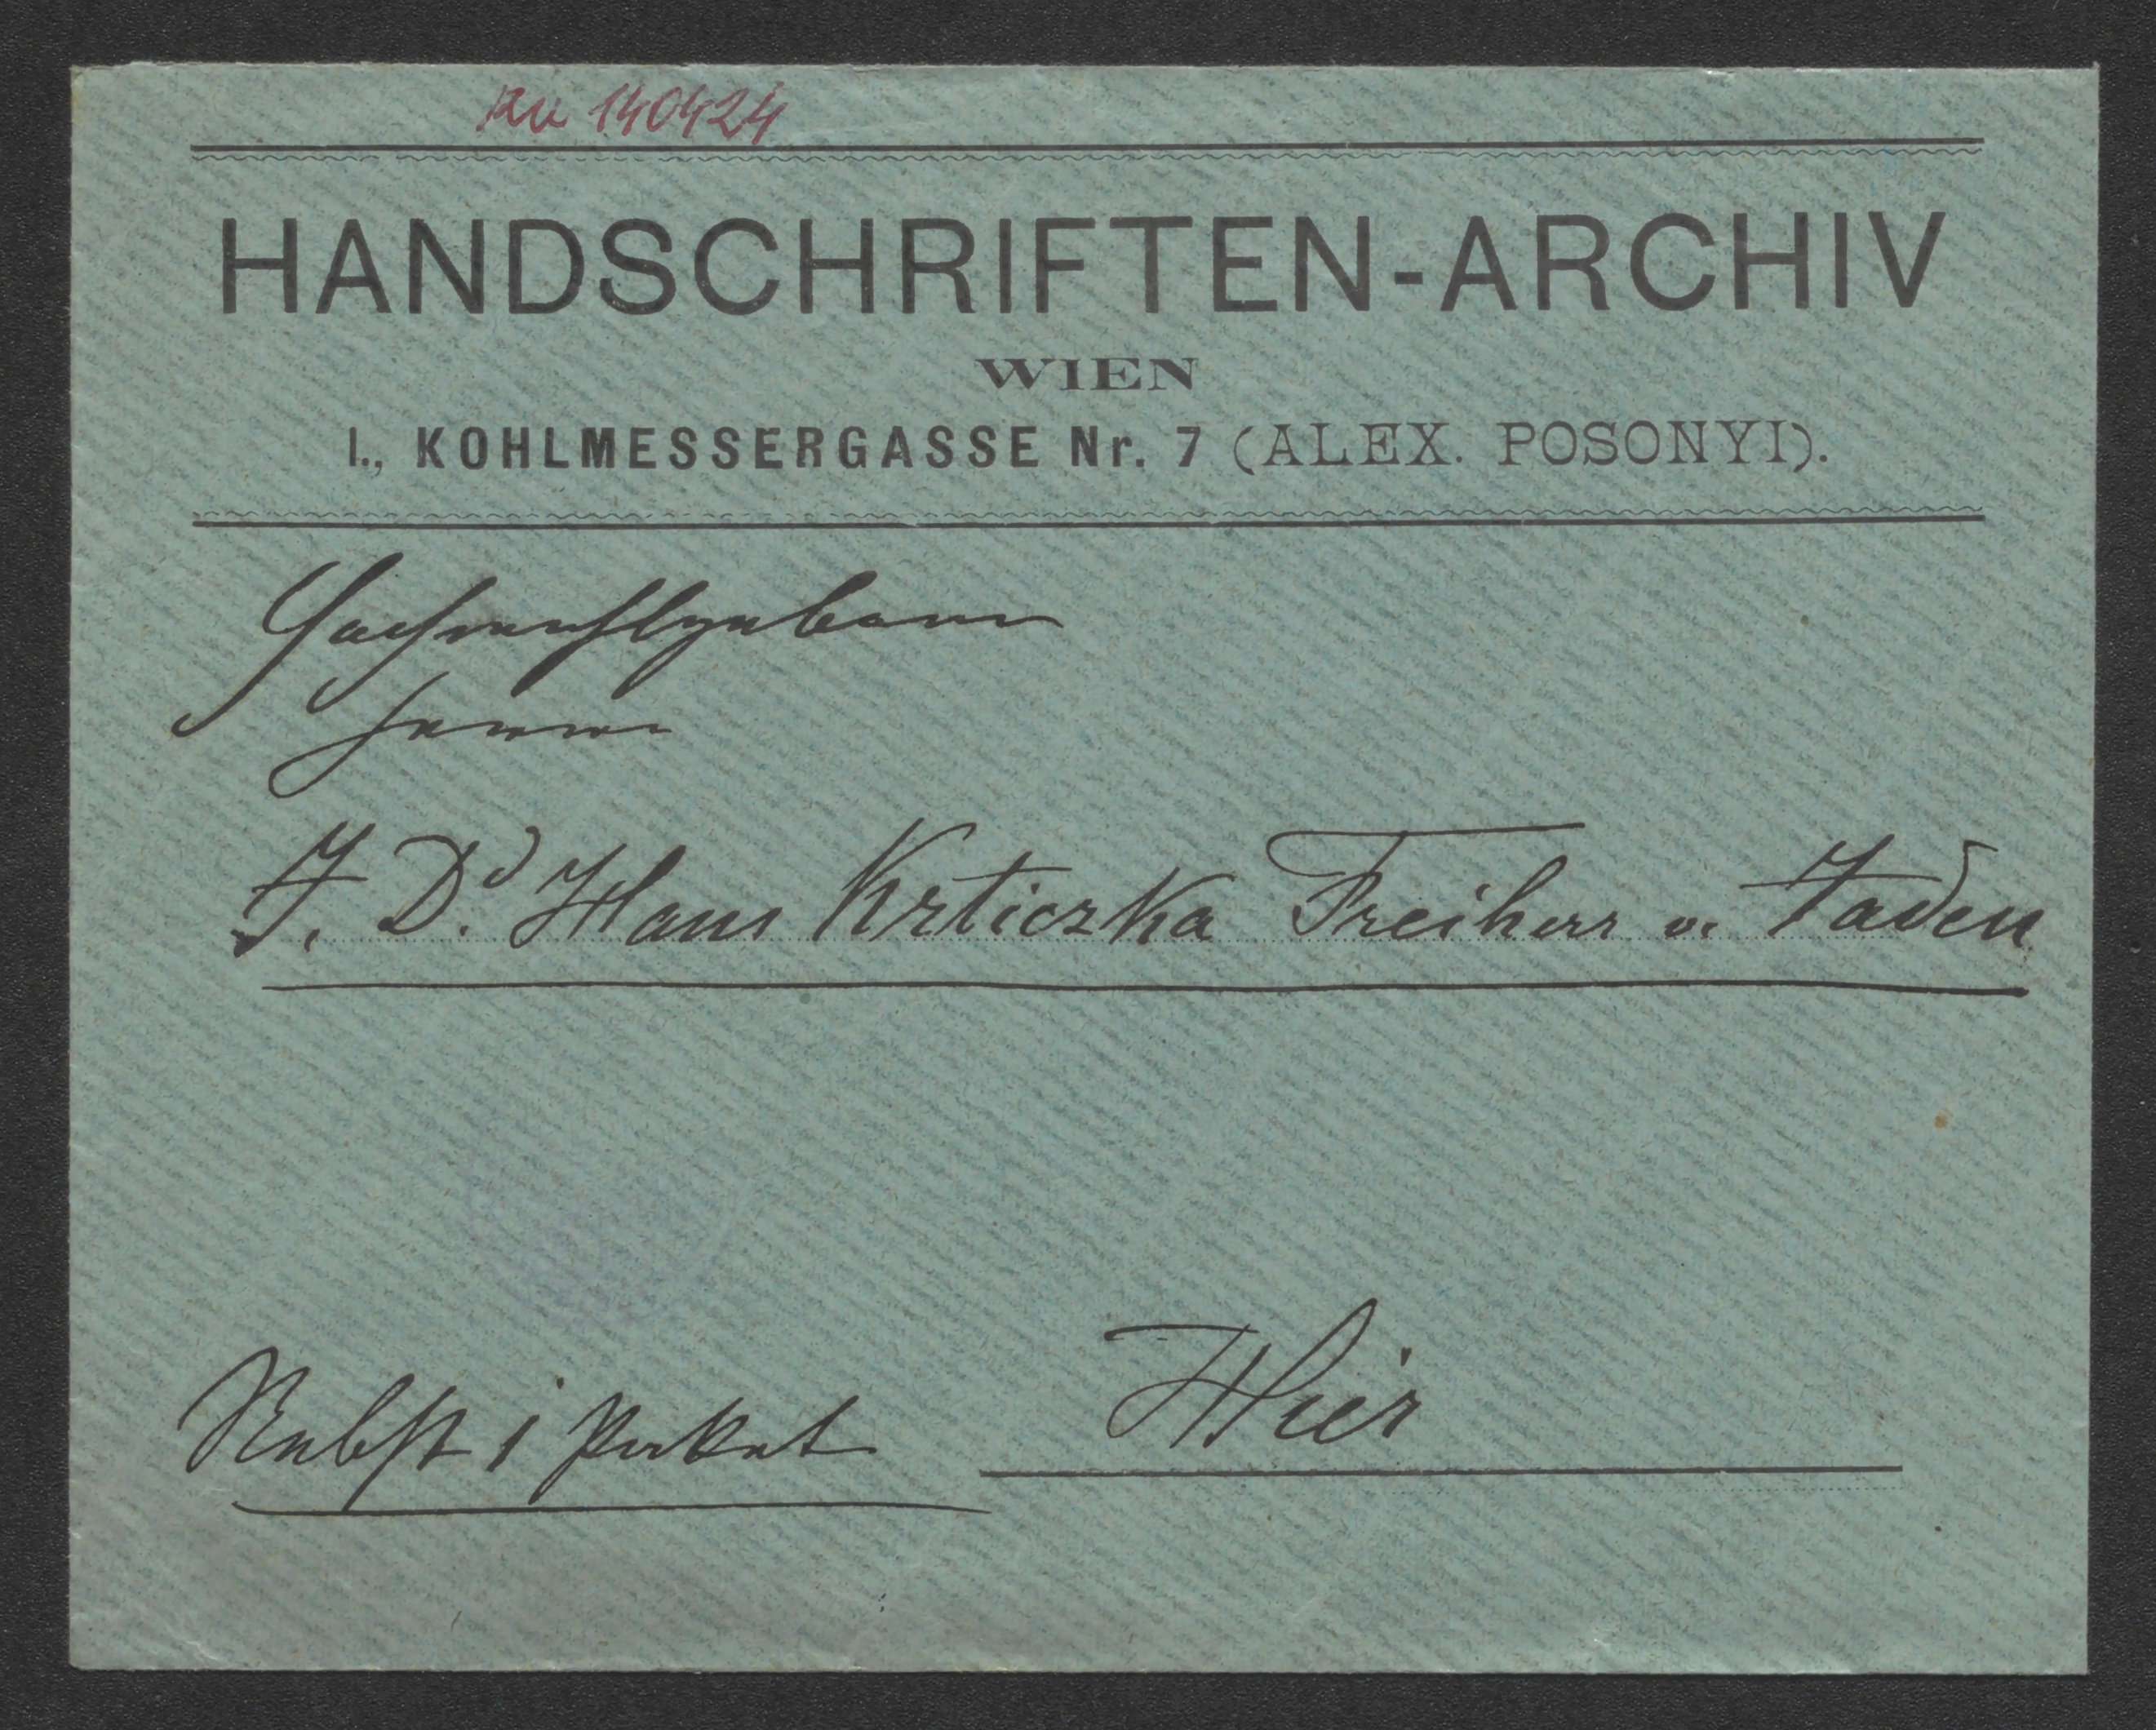 zu 140424
HANDSCHRIFTEN-ARCHIV
WIEN
I., KOHLMESSERGASSE Nr. 7 (ALEX. POSONYI).
Hochwohlgeboren
Herrn
J. Dr. Hans Krticzka Freiherr v. Jaden
Hier
Nebst 1 Paket